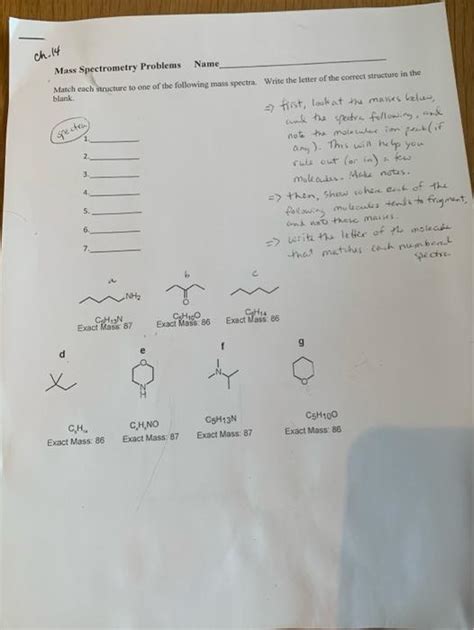 ch.14
Mass Spectrometry Problems Name
Match each structure to one of the following mass spectra. Write the letter of the correct structure in the
blank.
⇒ first, look at the masses below,
and the spectra following, and
note the molecular ion peak (if
any). This will help you
rule out (or in) a few
molecules. Make notes.
⇒ then, show where each of the
following molecules tends to fragment,
and note those masses.
⇒ write the letter of the molecule
that matches each numbered
spectra
spectra
1.
2.
3.
4.
5.
6.
7.
a
b
c
NH₂
O
C₅H₁₃N
Exact Mass: 87
C₅H₁₀O
Exact Mass: 86
C₆H₁₄
Exact Mass: 86
d
e
f
g
O
N
H
N
O
C₆H₁₄
Exact Mass: 86
C₄H₉NO
Exact Mass: 87
C5H13N
Exact Mass: 87
C5H10O
Exact Mass: 86